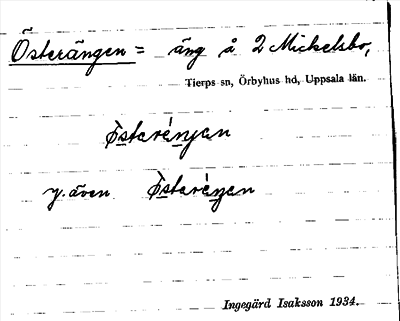 Österängen = äng å 2 Mickelsbo,
Tierps sn, Örbyhus hd, Uppsala län.
ø̀starénjen
y. även ø̀staréŋen
Ingegärd Isaksson 1934.